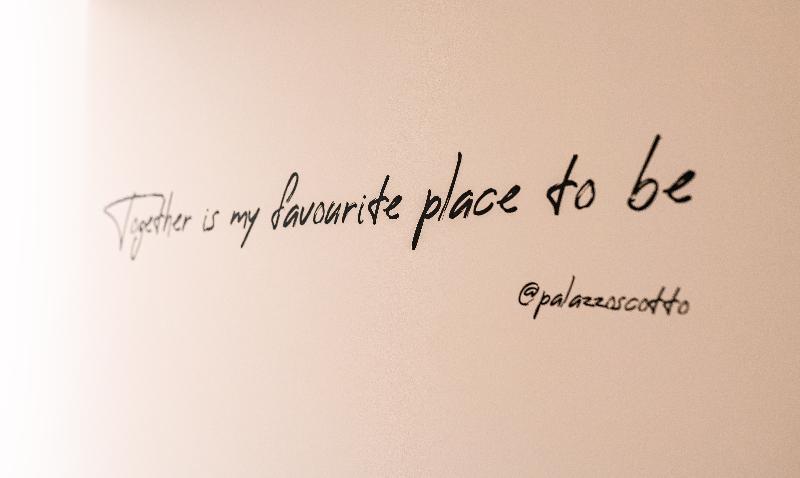 Together is my favourite place to be
@palazzoscotto